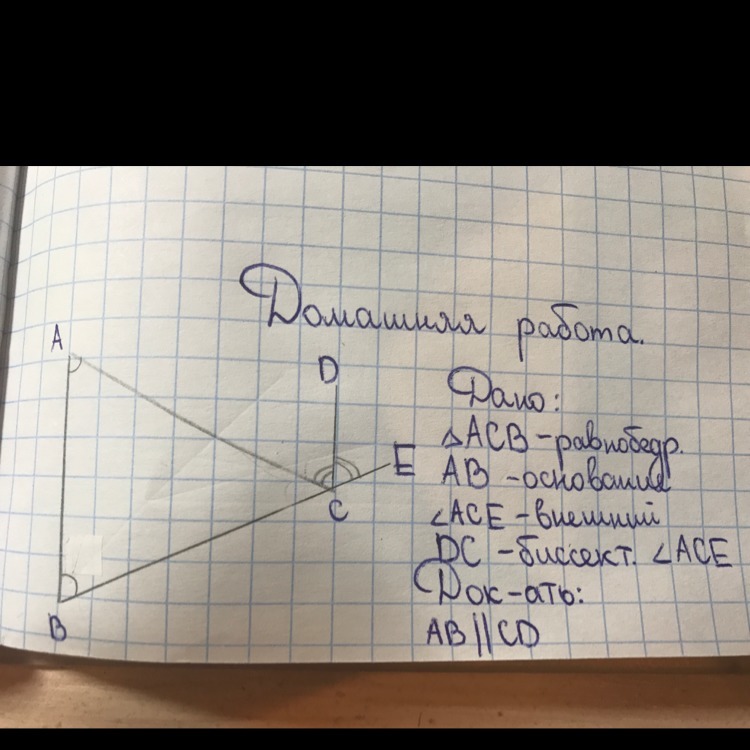 Домашняя работа.
A
D
Дано:
△ACB - равнобедр.
E
AB - основание
C
∠ACE - внешний
DC - биссект. ∠ACE
Док-ать:
B
AB || CD